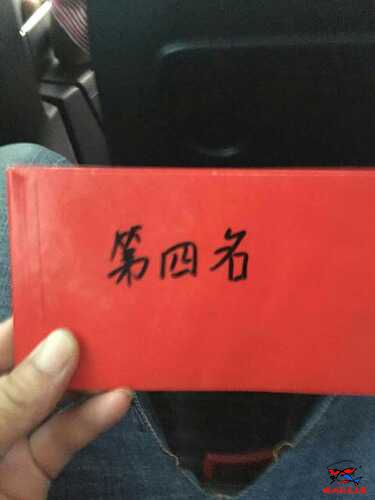 第四名